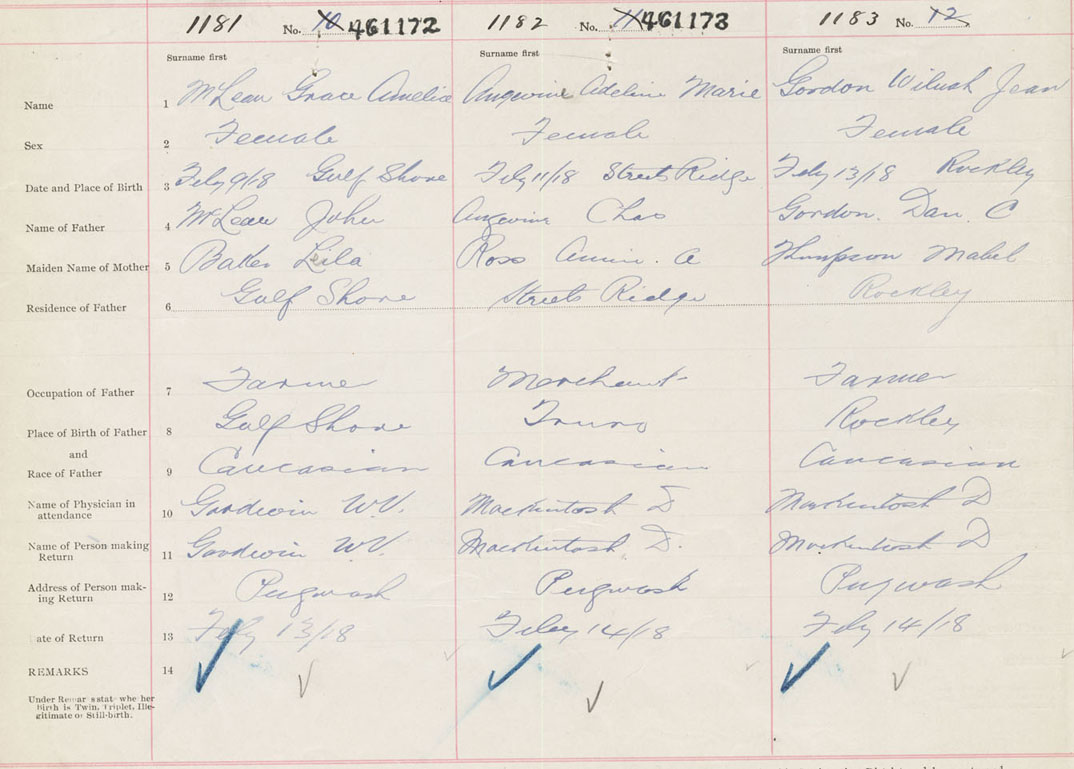 1181 No. 10 461172 1182 No. 11 461173 1183 No. 12
Surname first Surname first Surname first
Name 1 McLean Grace Amelia Angevine Adeline Marie Gordon Jean
Sex 2 Female Female Female
Date and Place of Birth 3 Feby 9/18 Gulf Shore Feby 11/18 Streets Ridge Feby 13/18 Rockley
Name of Father 4 McLean John Angevine Chas Gordon. Dan. C
Maiden Name of Mother 5 Lila Ross A Thompson Mabel
Residence of Father 6 Gulf Shore Streets Ridge Rockley
Occupation of Father 7 Farmer Merchant Farmer
Place of Birth of Father 8 Gulf Shore Truro Rockley
and
Race of Father 9 Caucasian Caucasian Caucasian
Name of Physician in
attendance 10 Goodwin W.V. Mackintosh D Mackintosh D
Name of Person making
Return 11 Goodwin W.V. Mackintosh D. Mackintosh D
Address of Person mak-
ing Return 12 Pugwash Pugwash Pugwash
ate of Return 13 Feby 13/18 Feby 14/18 Feby 14/18
REMARKS 14
Under Remar s stat whe her
Birth is Twin, Triplet, Ille-
gitimate or Still-birth.